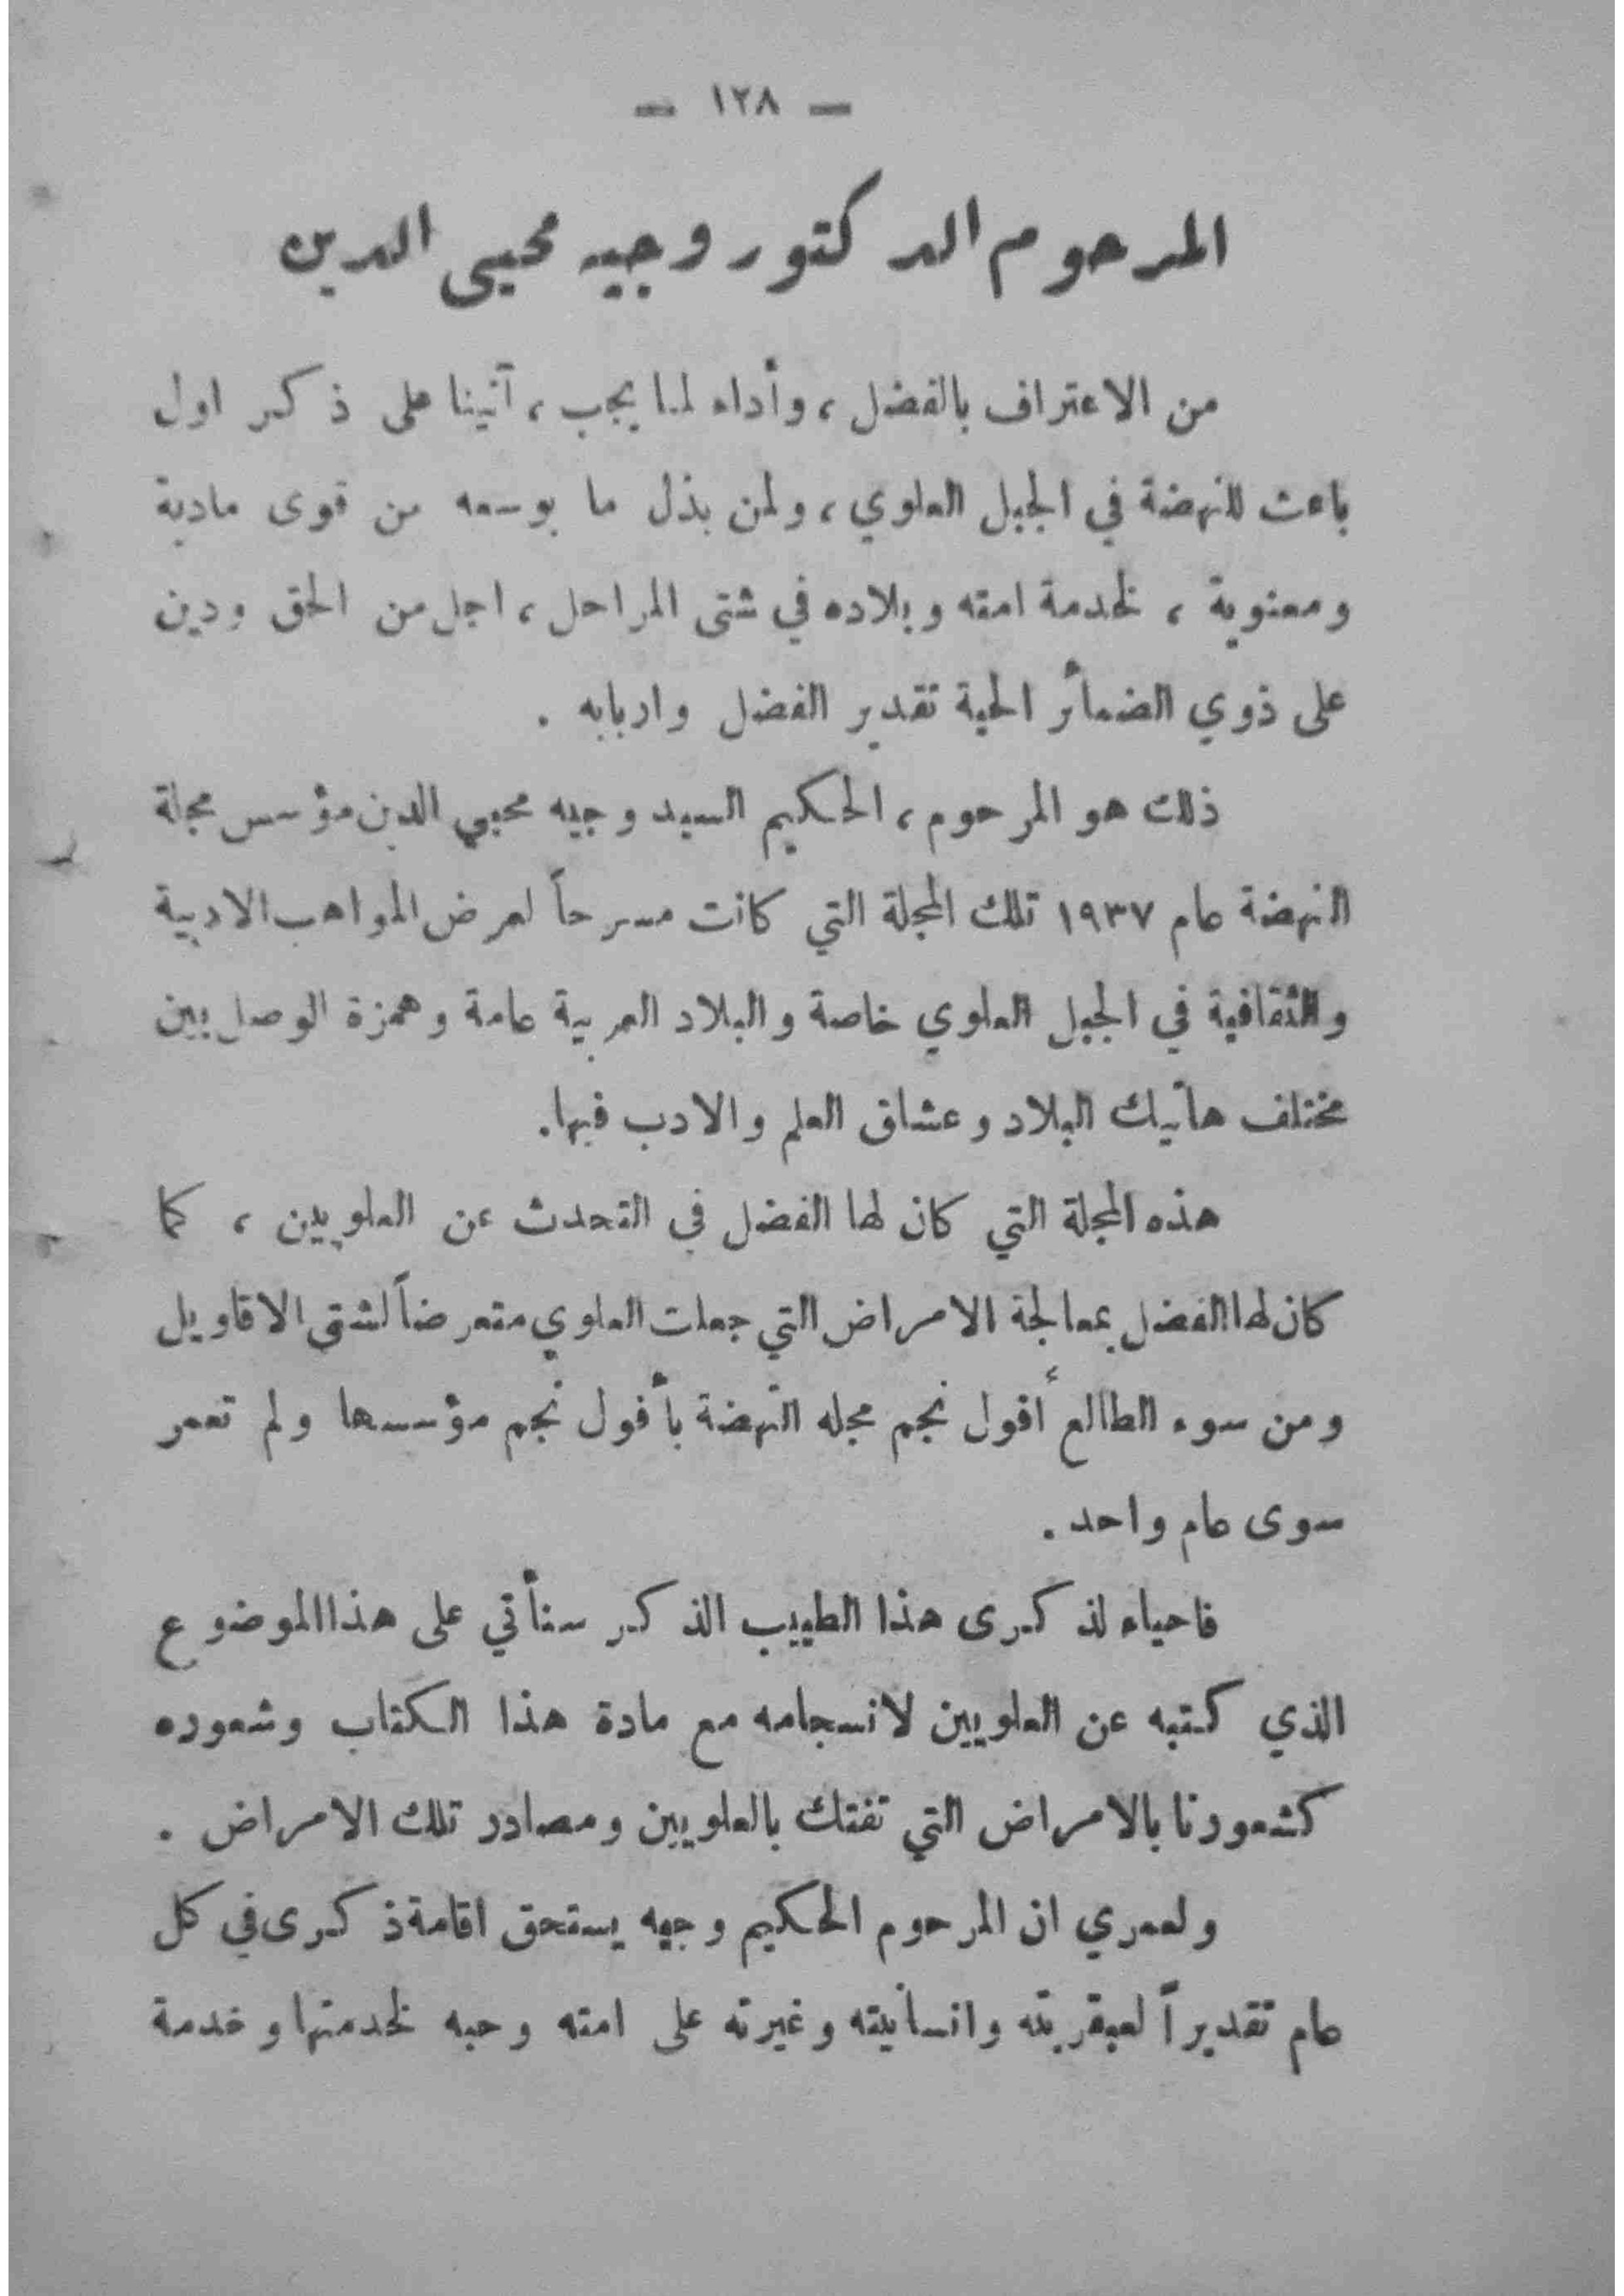 — ١٢٨ —
المرحوم الدكتور وجيه محيي الدين
من الاعتراف بالفضل ، وأداء لما يجب ، آتينا على ذكر اول
باعث للنهضة في الجبل العلوي ، ولمن بذل ما بوسعه من قوى مادية
ومعنوية ، لخدمة امته وبلاده في شتى المراحل ، اجل من الحق ودين
على ذوي الضمائر الحية تقدير الفضل واربابه .
ذلك هو المرحوم ، الحكيم السيد وجيه محيي الدين مؤسس مجلة
النهضة عام ١٩٣٧ تلك المجلة التي كانت مسرحاً لعرض المواهب الادبية
والثقافية في الجبل العلوي خاصة والبلاد العربية عامة وهمزة الوصل بين
مختلف هاتيك البلاد وعشاق العلم والادب فيها.
هذه المجلة التي كان لها الفضل في التحدث عن العلويين ، كما
كان لها الفضل بمعالجة الامراض التي جعلت العلوي متعرضاً لشتى الاقاويل
ومن سوء الطالع أفول نجم مجله النهضة بأفول نجم مؤسسها ولم تعمر
سوى عام واحد .
فاحياء لذكرى هذا الطبيب الذكر سنأتي على هذا الموضوع
الذي كتبه عن العلويين لانسجامه مع مادة هذا الكتاب وشعوره
كشعورنا بالامراض التي تفتك بالعلويين ومصادر تلك الامراض .
ولعمري ان المرحوم الحكيم وجيه يستحق اقامة ذكرى في كل
عام تقديراً لعبقريته وانسانيته وغيرته على امته وحبه لخدمتها وخدمة